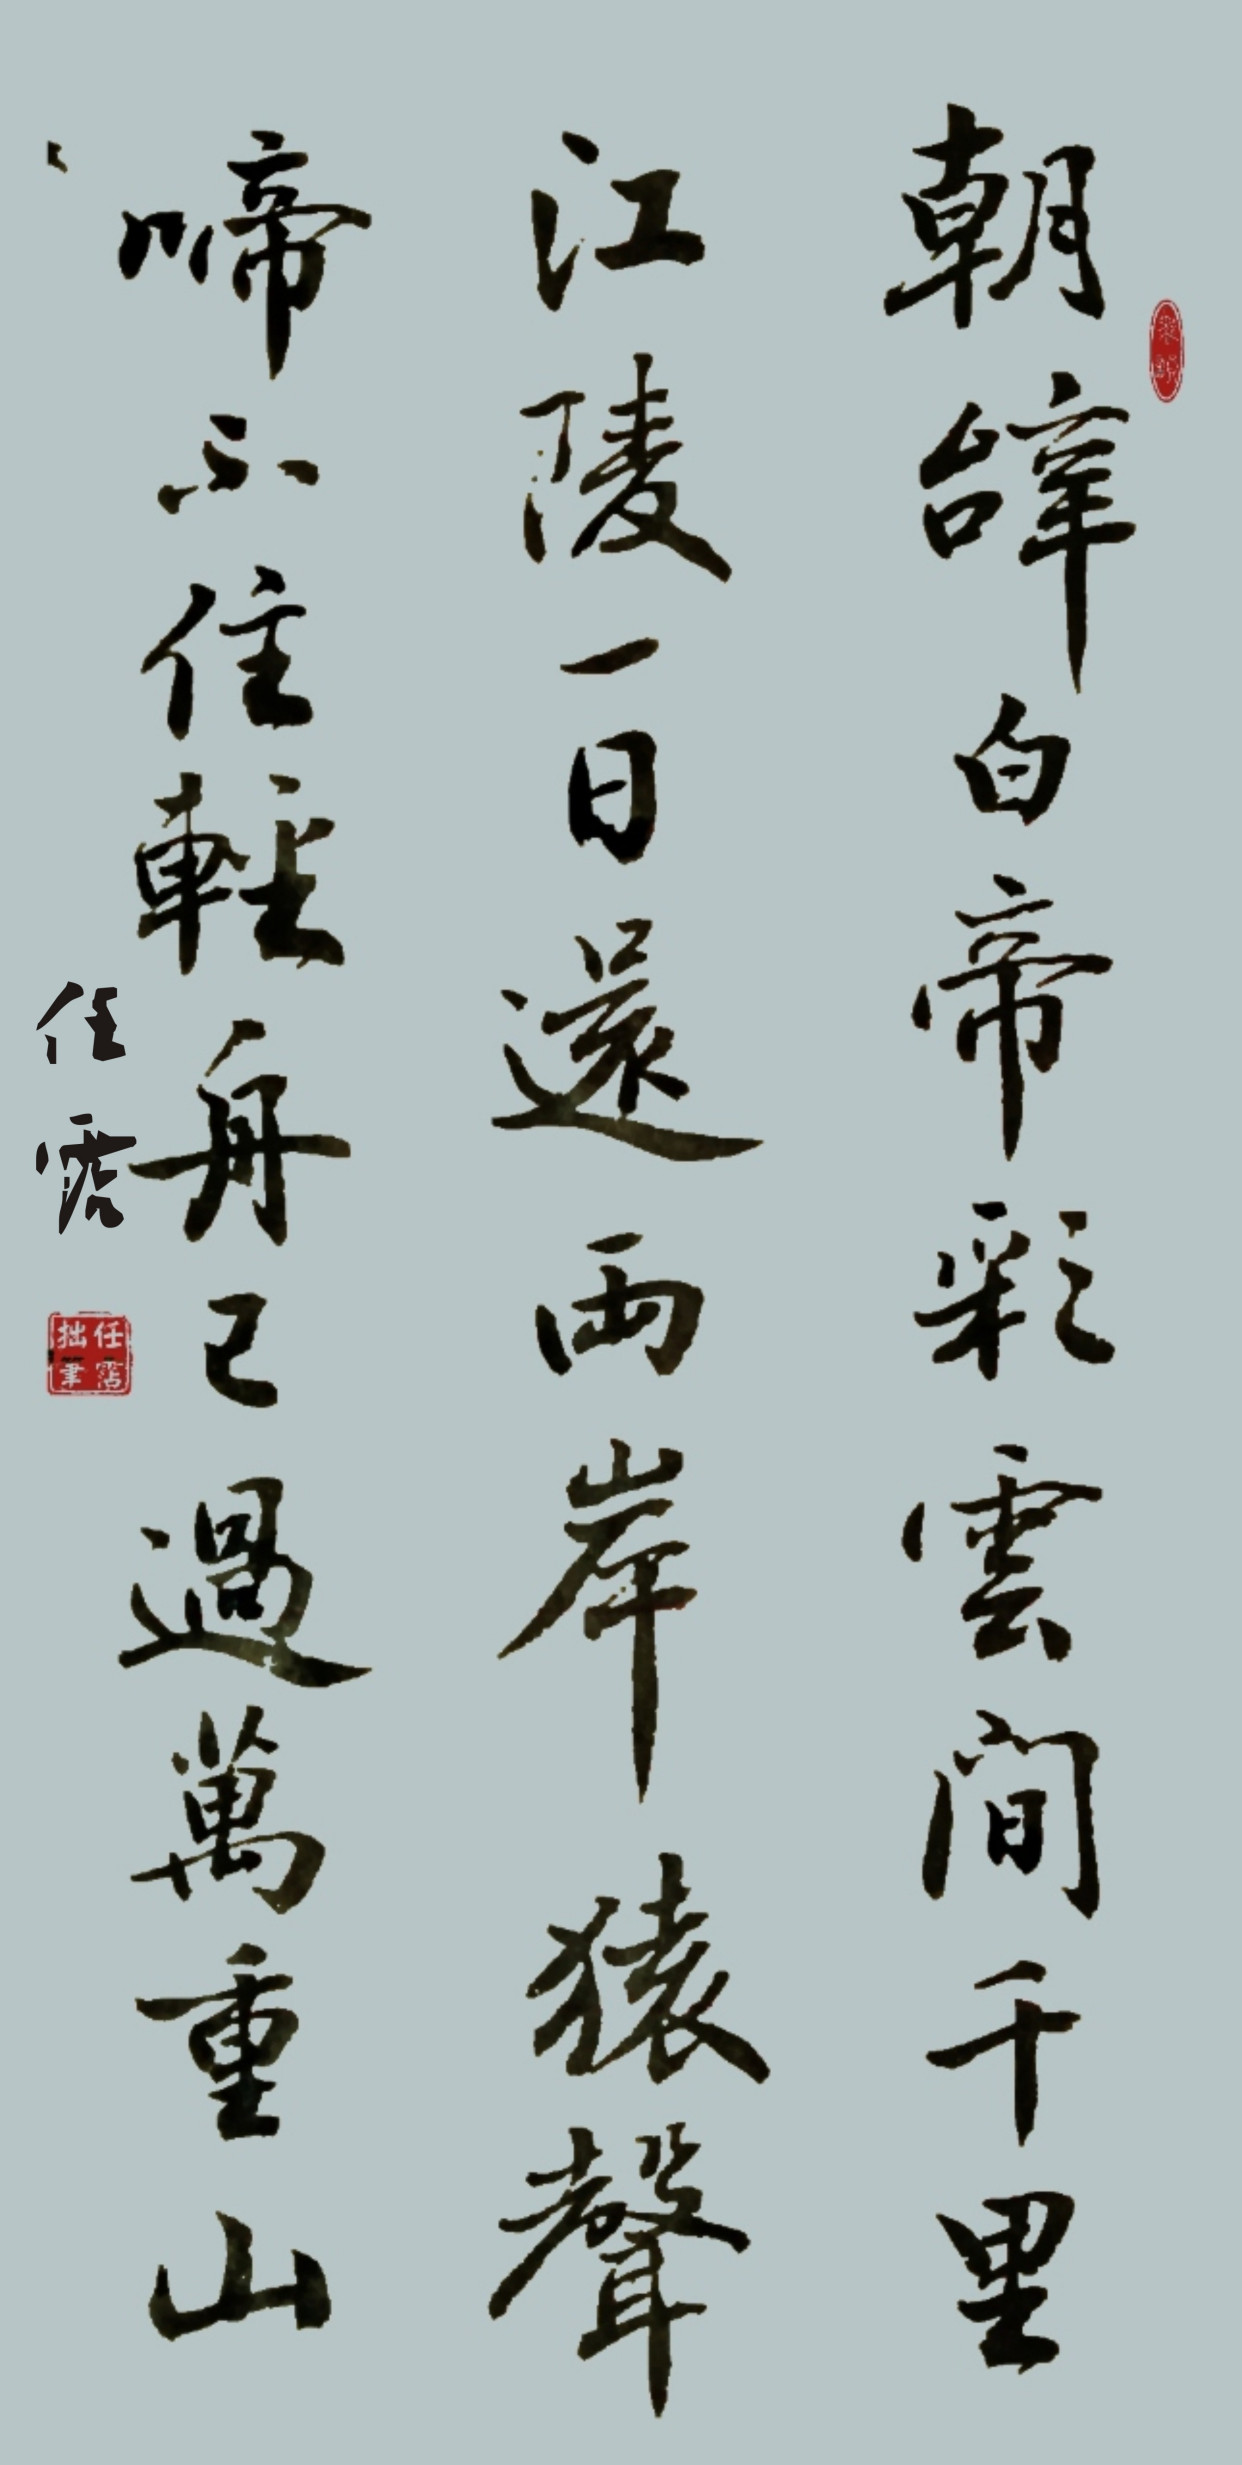 朝辞白帝彩雲間千里
江陵一日還兩岸猿聲
啼不住輕舟已過萬重山
任霑
任霑拙筆